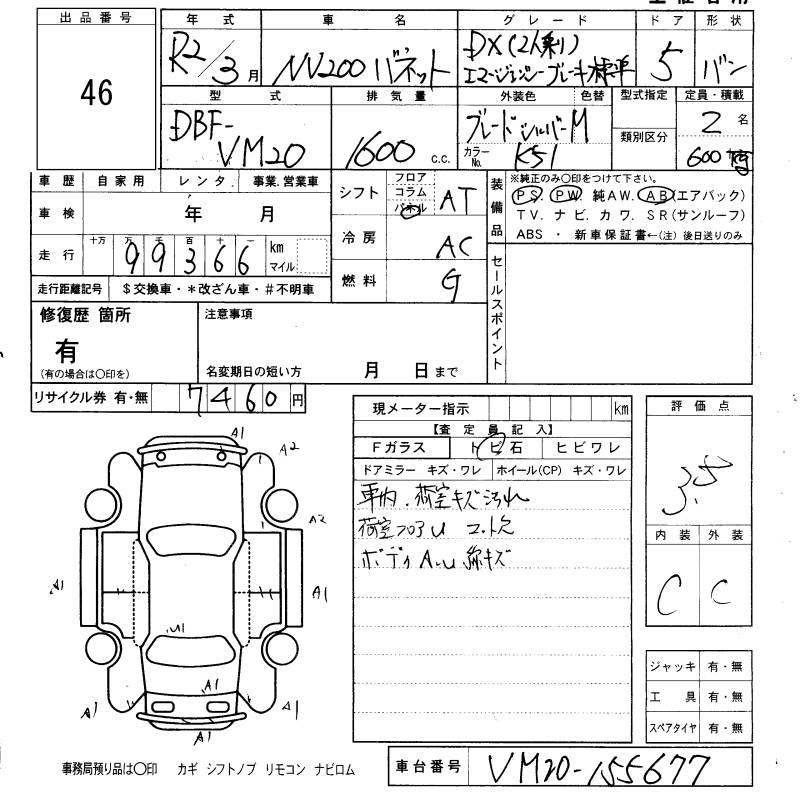 出品番号
46
年式 車名 グレード ドア 形状
R2/3月 NV200 バネット DX(2人乗り) 5 バン
エマージェンシーブレーキ標準
型式 排気量 外装色 色替 型式指定 定員・積載
DBF-VM20 1600 c.c. ブレードシルバーM 類別区分 2名
カラーNo. K51 600
車歴 自家用 レンタ. 事業.営業車
車検 年 月
走行 十万 万 千 百 十 一
99366 km マイル
走行距離記号 $交換車・*改ざん車・#不明車
シフト フロア コラム パネル AT
冷房 AC
燃料 G
装備品 ※純正のみ○印をつけて下さい。
PS. PW. 純AW. AB(エアバック)
TV. ナビ. カワ. SR(サンルーフ)
ABS ・ 新車保証書←(注) 後日送りのみ
セールスポイント
修復歴 箇所
有
(有の場合は○印を)
注意事項
名変期日の短い方 月 日まで
リサイクル券 有・無 7460円
現メーター指示 km
【査定員記入】
Fガラス トビ石 ヒビワレ
ドアミラー キズ・ワレ ホイール(CP) キズ・ワレ
車内.荷室キズ汚れ
荷室フロアU コ.トズ
ボディA.U 線キズ
評価点
3.5
内装 外装
C C
ジャッキ 有・無
工具 有・無
スペアタイヤ 有・無
A1
A2
A2
A1
A1
U1
A1
A1
A1
A1
事務局預り品は○印 カギ シフトノブ リモコン ナビロム
車台番号 VM20-155677